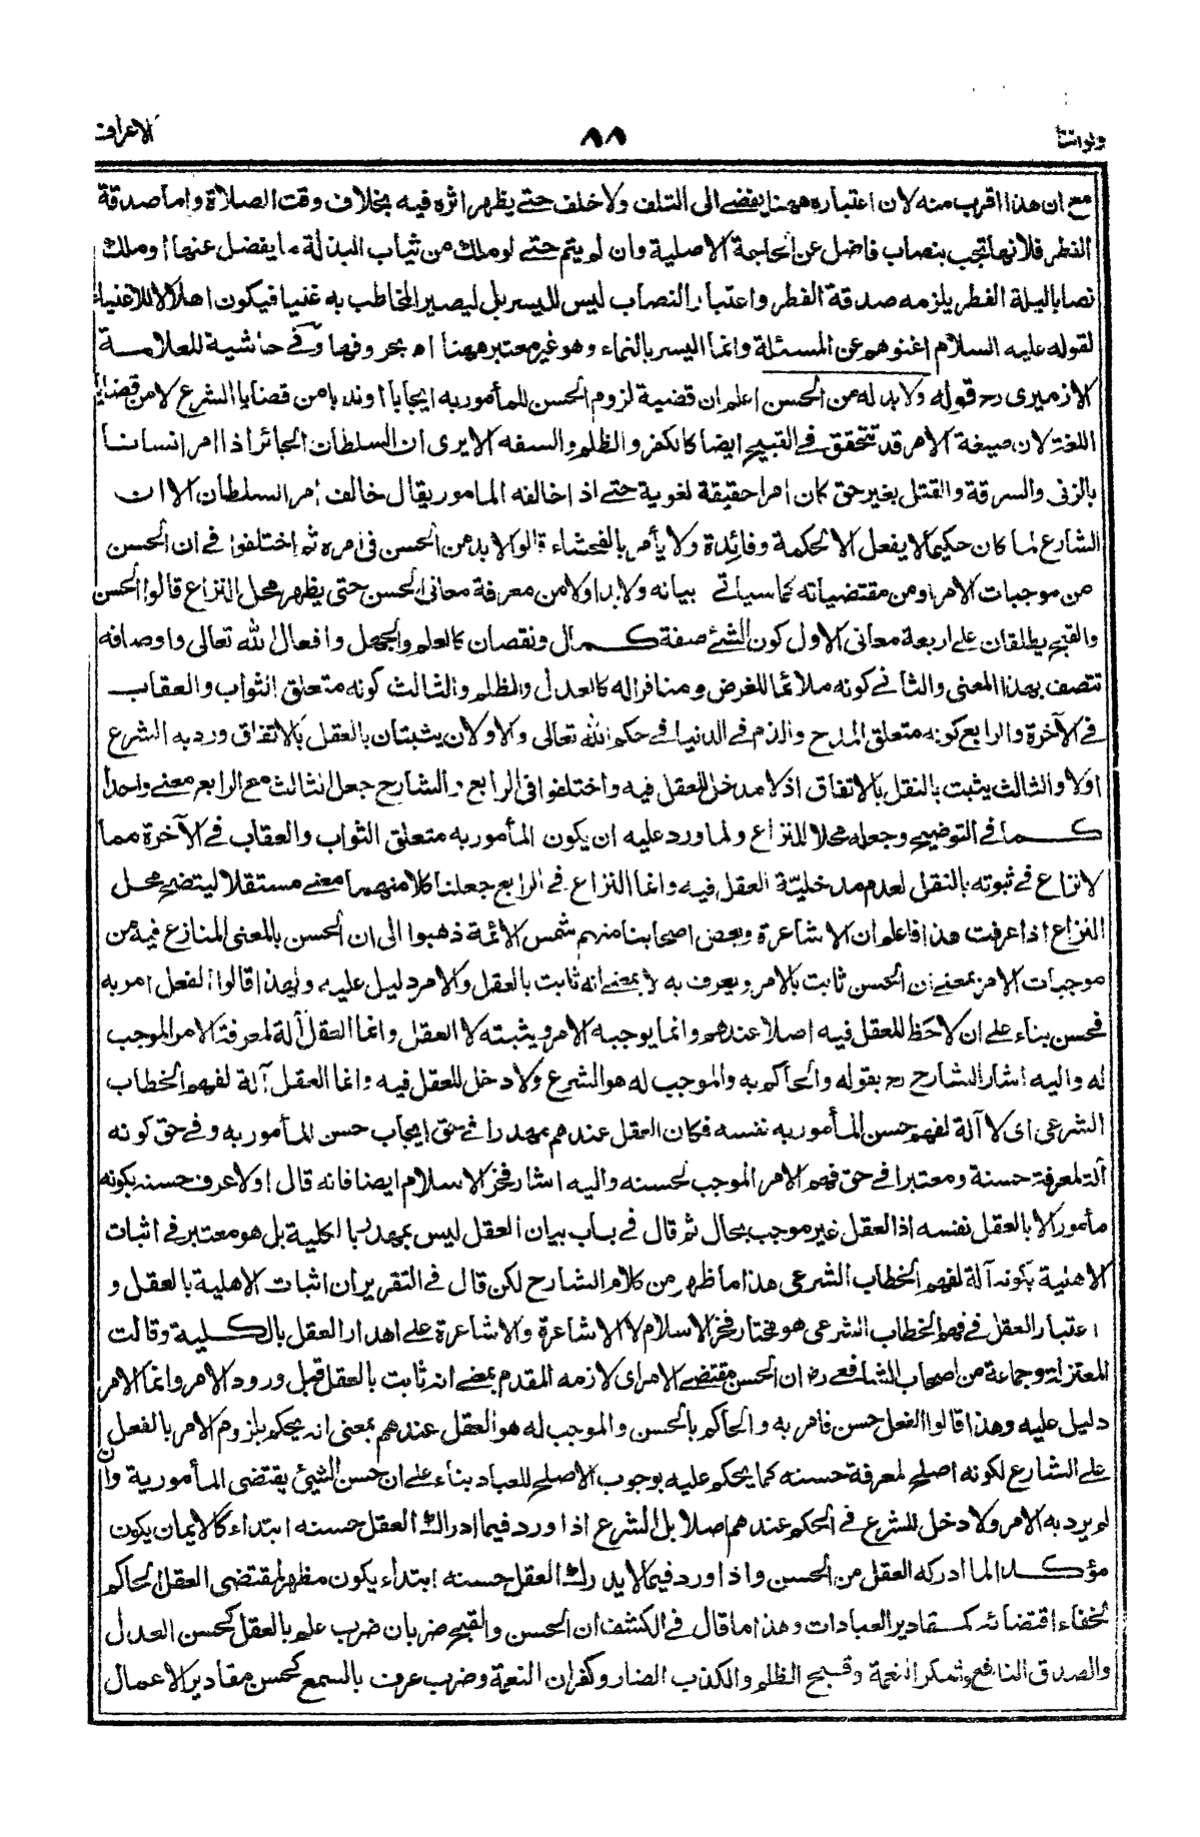 الاعراف ٨٨
مع ان هذا اقرب منه لان اعتباره ههنا يفضى الى التلف ولا خلف حتى يظهر اثره فيه بخلاف وقت الصلاة واما صدقة
الفطر فلانها تجب بنصاب فاضل عن الحاجة الاصلية وان لم يتم حتى لو ملك من ثياب البذلة ما يفضل عنها او ملك
نصابا ليلة الفطر يلزمه صدقة الفطر واعتبار النصاب ليس لليسر بل ليصير المخاطب به غنيا فيكون اهلا للاغنياء
لقوله عليه السلام اغنوهم عن المسئلة وانما اليسر بالنماء وهو غير معتبر ههنا اه بحروفها وفى حاشية للعلامة
الازميرى رح قوله ولا بد له من الحسن اعلم ان قضية لزوم الحسن للمأمور به ايجابا او ندبا من قضايا الشرع لا من قضايا
اللغة لان صيغة الامر قد تتحقق فى القبيح ايضا كالكفر والظلم والسفه الا يرى ان السلطان الجائر اذا امر انسانا
بالزنى والسرقة والقتل بغير حق كان امرا حقيقة لغوية حتى اذا خالفه المامور يقال خالف امر السلطان الا ان
الشارع لما كان حكيما لا يفعل الا لحكمة وفائدة ولا يأمر بالفحشاء قالوا لا بد من الحسن فى امره ثم اختلفوا فى ان الحسن
من موجبات الامر او من مقتضياته كما سياتى بيانه ولا بد اولا من معرفة معانى الحسن حتى يظهر محل النزاع قالوا الحسن
والقبح يطلقان على اربعة معانى الاول كون الشئ صفة كمال ونقصان كالعلم والجهل وافعال الله تعالى واوصافه
تتصف بهذا المعنى والثانى كونه ملائما للغرض ومنافرا له كالعدل والظلم والثالث كونه متعلق الثواب والعقاب
فى الآخرة والرابع كونه متعلق المدح والذم فى الدنيا فى حكم الله تعالى والاولان يثبتان بالعقل بالاتفاق ورد به الشرع
اولا والثالث يثبت بالنقل بالاتفاق اذ لا مدخل للعقل فيه واختلفوا فى الرابع والشارح جعل الثالث مع الرابع معنى واحدا
كما فى التوضيح وجعله محلا للنزاع ولما ورد عليه ان يكون المأمور به متعلق الثواب والعقاب فى الآخرة مما
لا نزاع فى ثبوته بالنقل لعدم مدخلية العقل فيه وانما النزاع فى الرابع جعلنا كلا منهما معنى مستقلا ليتضح محل
النزاع اذا عرفت هذا فاعلم ان الاشاعرة وبعض اصحابنا منهم شمس الائمة ذهبوا الى ان الحسن بالمعنى المنازع فيه من
موجبات الامر بمعنى ان الحسن ثابت بالامر ويعرف به لا بمعنى انه ثابت بالعقل والامر دليل عليه ولهذا قالوا الفعل امر به
فحسن بناء على ان لا حظ للعقل فيه اصلا عندهم وانما يوجبه الامر ويثبته لا العقل وانما العقل آلة لمعرفة الامر الموجب
له واليه اشار الشارح رح بقوله والحاكم به والموجب له هو الشرع ولا دخل للعقل فيه وانما العقل آلة لفهم الخطاب
الشرعى اى لا آلة لفهم حسن المأمور به نفسه فكان العقل عندهم مهدرا فى حق ايجاب حسن المأمور به وفى حق كونه
آلة لمعرفة حسنة ومعتبرا فى حق فهم الامر الموجب لحسنه واليه اشار فخر الاسلام ايضا فانه قال اولا عرف حسنه بكونه
مأمورا لا بالعقل نفسه اذ العقل غير موجب بحال ثم قال فى باب بيان العقل ليس بمهدر بالكلية بل هو معتبر فى اثبات
الاهلية بكونه آلة لفهم الخطاب الشرعى هذا ما ظهر من كلام الشارح لكن قال فى التقرير ان اثبات الاهلية بالعقل و
اعتبار العقل فى فهم الخطاب الشرعى هو مختار فخر الاسلام لا الاشاعرة والاشاعرة على اهدار العقل بالكلية وقالت
المعتزلة وجماعة من اصحاب الشافعى رض ان الحسن مقتضى الامر اى لازمه المقدم بمعنى انه ثابت بالعقل قبل ورود الامر وانما الامر
دليل عليه وهذا قالوا الفعل حسن فامر به والحاكم بالحسن والموجب له هو العقل عندهم بمعنى انه يحكم بلزوم الامر بالفعل
على الشارع لكونه اصلح لمعرفة حسنه كما يحكم عليه بوجوب الاصلح للعباد بناء على ان حسن الشئ يقتضى المأمورية وان
لم يرد به الامر ولا دخل للشرع فى الحكم عندهم اصلا بل الشرع اذا ورد فيما ادراك العقل حسنه ابتداء كالايمان يكون
مؤكدا لما ادركه العقل من الحسن واذا ورد فيما لا يدرك العقل حسنه ابتداء يكون مظهرا لمقتضى العقل الحاكم
لخفاء اقتضائه كمقادير العبادات وهذا ما قال فى الكشف ان الحسن والقبح ضربان ضرب علم بالعقل كحسن العدل
والصدق النافع وشكر النعمة وقبح الظلم والكذب الضار وكفران النعمة وضرب عرف بالسمع كحسن مقادير الاعمال